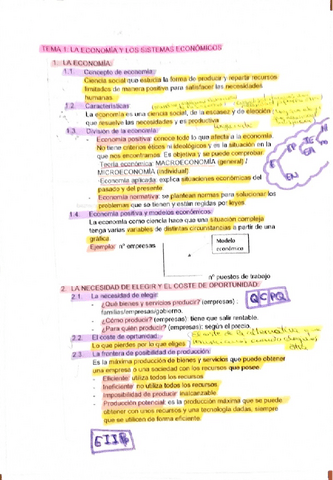 TEMA 1: LA ECONOMÍA Y LOS SISTEMAS ECONÓMICOS
1. LA ECONOMÍA:
1.1. Concepto de economía:
Ciencia social que estudia la forma de producir y repartir recursos
limitados de manera positiva para satisfacer las necesidades
humanas.
1.2. Características
La economía es una ciencia social, de la escasez y de elección
que resuelve las necesidades y es productiva
1.3. División de la economía:
- Economía positiva: conoce todo lo que afecta a la economía.
No tiene criterios éticos ni ideológicos y es la situación en la
que nos encontramos. Es objetiva y se puede comprobar
Teoría económica: MACROECONOMÍA (general) /
MICROECONOMÍA (individual)
Economía aplicada: explica situaciones económicas del
pasado y del presente
- Economía normativa: se plantean normas para solucionar los
problemas que se tienen y están regidas por leyes
1.4. Economía positiva y modelos económicos:
La economía como ciencia hace que una situación compleja
tenga varias variables de distintas circunstancias a partir de una
gráfica
Ejemplo: nº empresas
Modelo
económico
nº puestos de trabajo
2. LA NECESIDAD DE ELEGIR Y EL COSTE DE OPORTUNIDAD:
2.1. La necesidad de elegir:
QCPQ
- ¿Qué bienes y servicios producir? (empresas) ;
familias/empresas/gobierno.
- ¿Cómo producir? (empresas): tiene que salir rentable.
- ¿Para quién producir? (empresas): según el precio.
2.2. El coste de oportunidad:
Lo que pierdes por lo que eliges
2.3. La frontera de posibilidad de producción:
Es la máxima producción de bienes y servicios que puede obtener
una empresa o una sociedad con los recursos que posee
- Eficiente: utiliza todos los recursos
- Ineficiente: no utiliza todos los recursos
- Imposibilidad de producir: inalcanzable
- Producción potencial: es la producción máxima que se puede
obtener con unos recursos y una tecnología dadas, siempre
que se utilicen de forma eficiente.